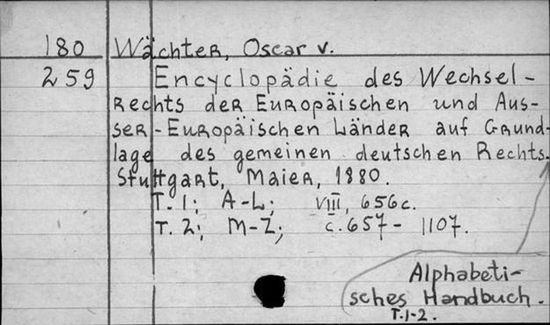 180 Wächter, Oscar v.
259 Encyclopädie des Wechsel-
rechts der Europäischen und Aus-
ser-Europäischen Länder auf Grund-
lage des gemeinen deutschen Rechts.
Stuttgart, Maier, 1880.
T. 1; A-L; VIII, 656 c.
T. 2; M-Z; c. 657- 1107.
Alphabeti-
sches Handbuch.
T. 1-2.